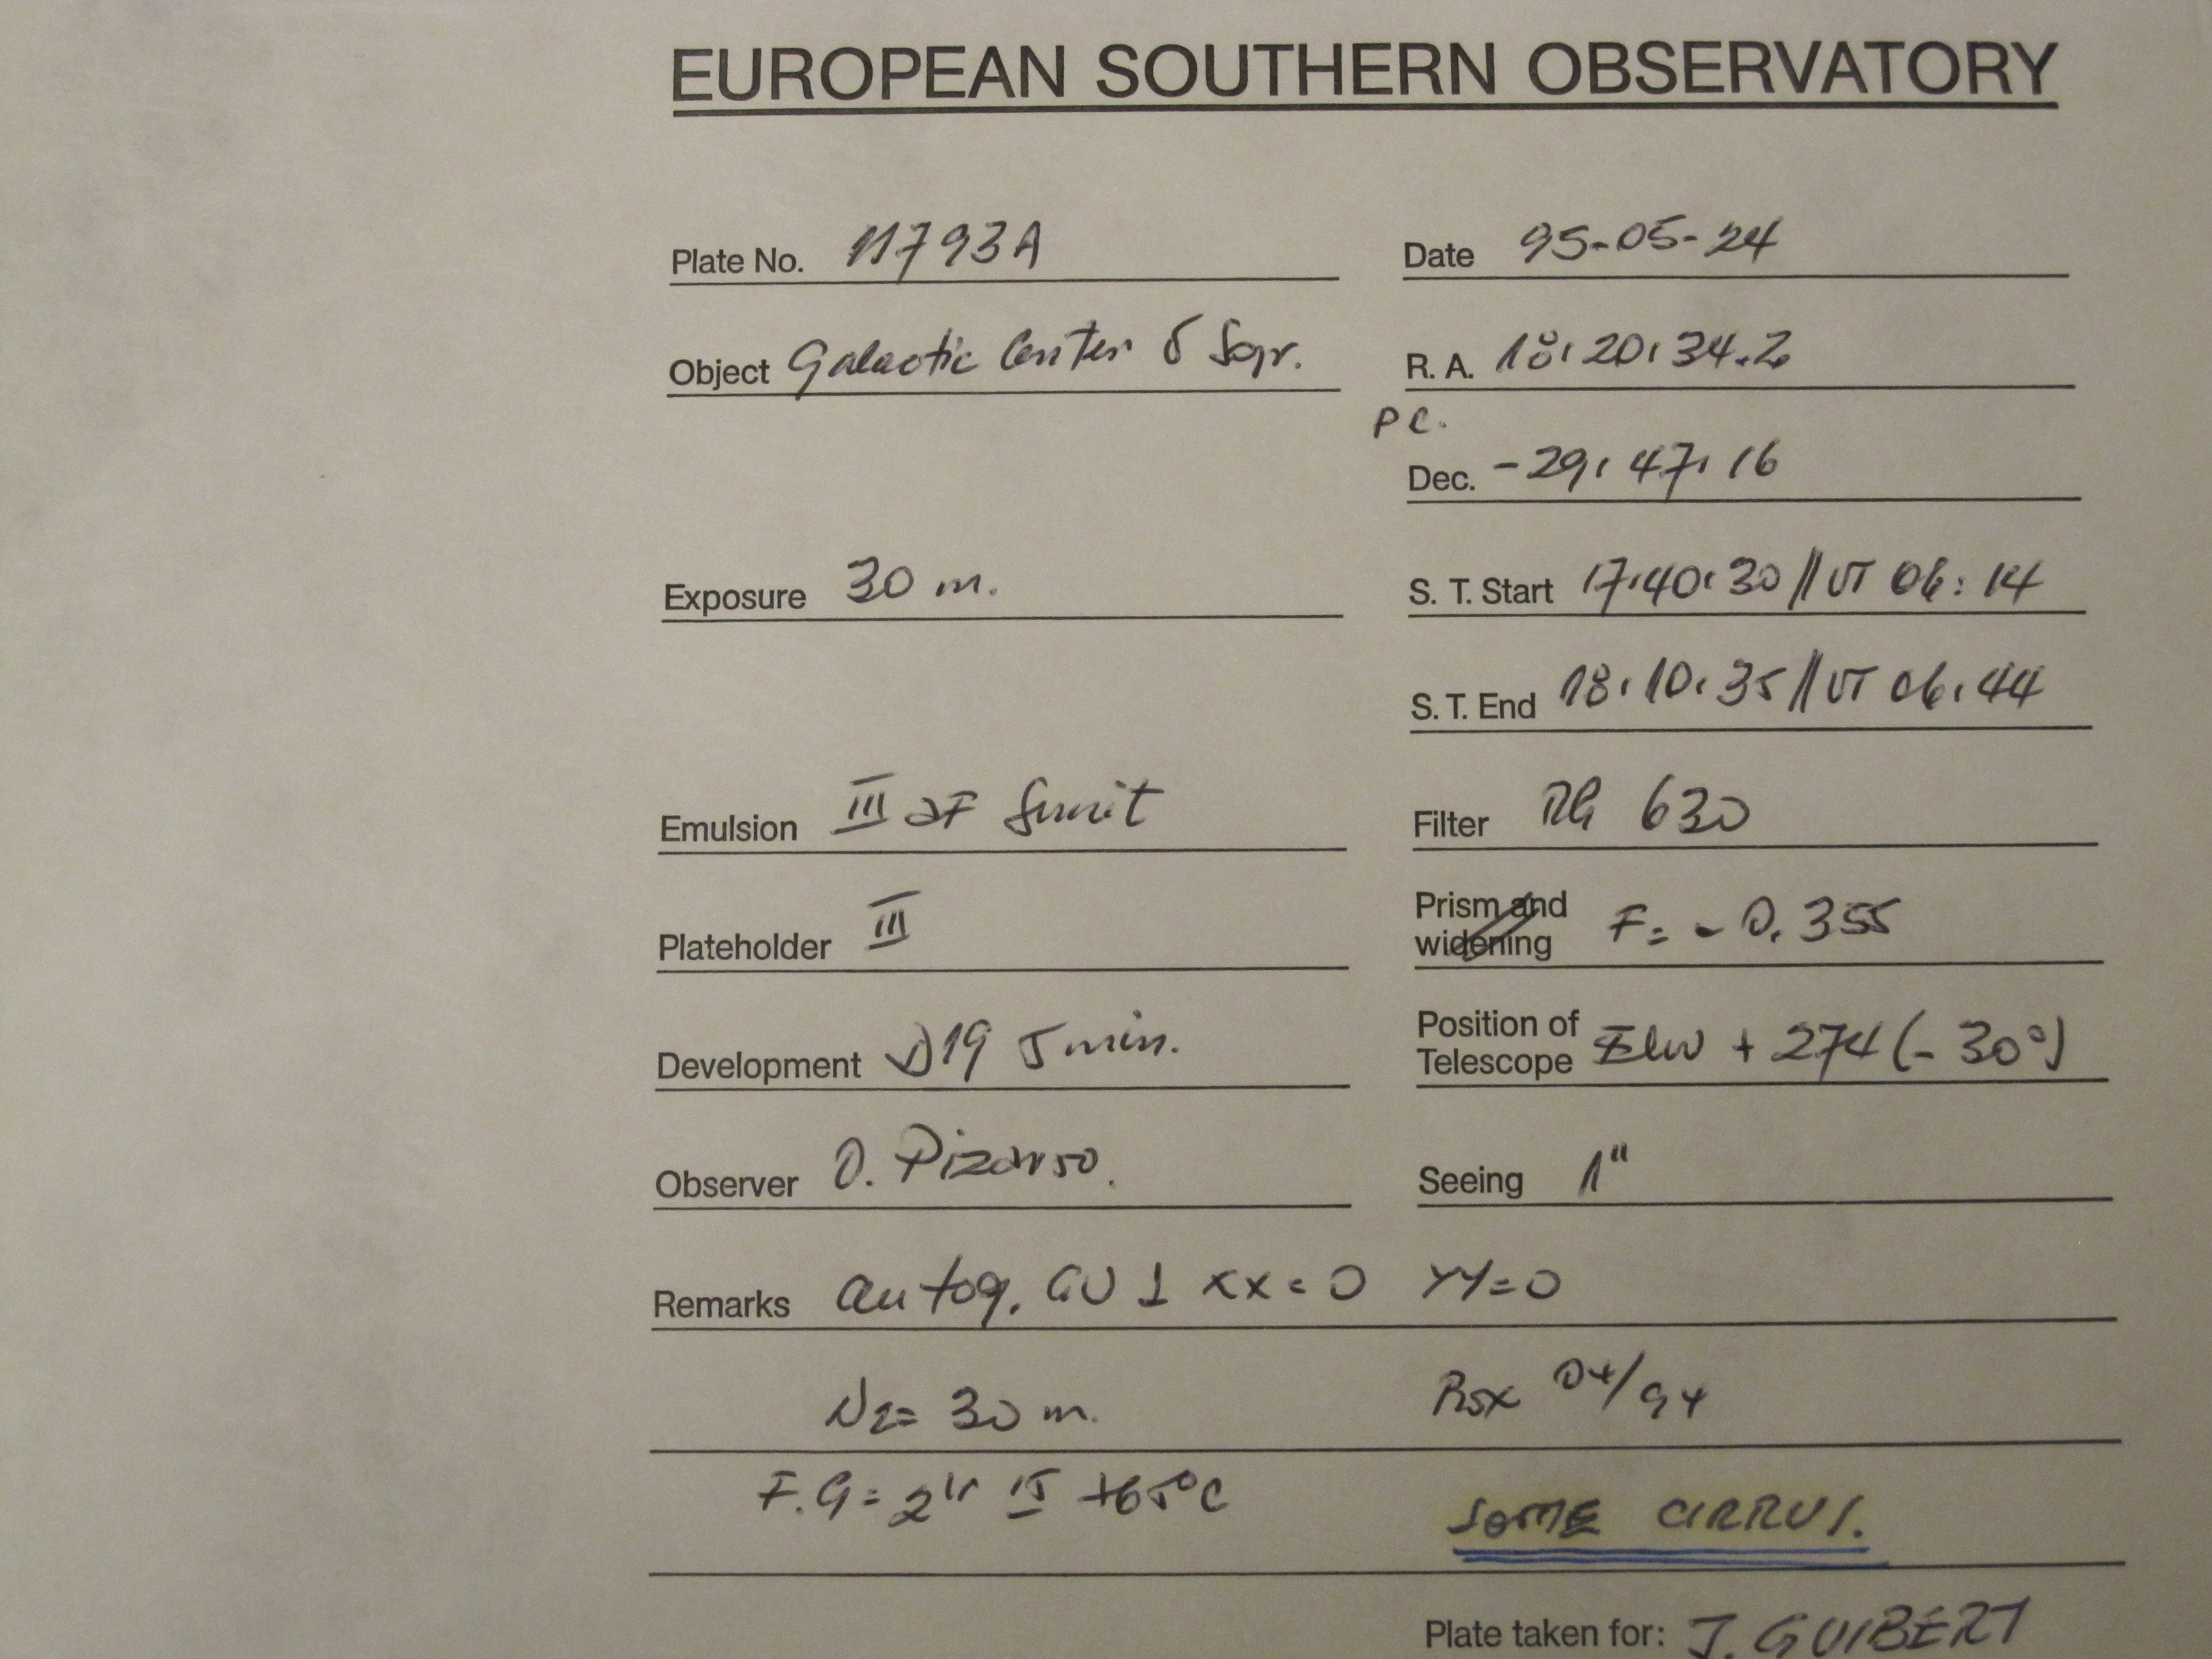 EUROPEAN SOUTHERN OBSERVATORY
Plate No. 11793A Date 95-05-24
Object Galactic Center δ Sgr. R. A. 18:20:34.2
PC.
Dec. -29:47:16
Exposure 30 m. S. T. Start 17:40:30 // UT 06:14
S. T. End 18:10:35 // UT 06:44
Emulsion III aF Filter RG 630
Plateholder III Prism and widening F= -0.355
Development D19 5 min. Position of Telescope + 274 (-30°)
Observer O. Pizarro. Seeing 1"
Remarks autog. GU 1 XX=0 YY=0
N2= 30 m. 04/94
F.G= +65°C SOME CIRRUS.
Plate taken for: J. GUIBERT